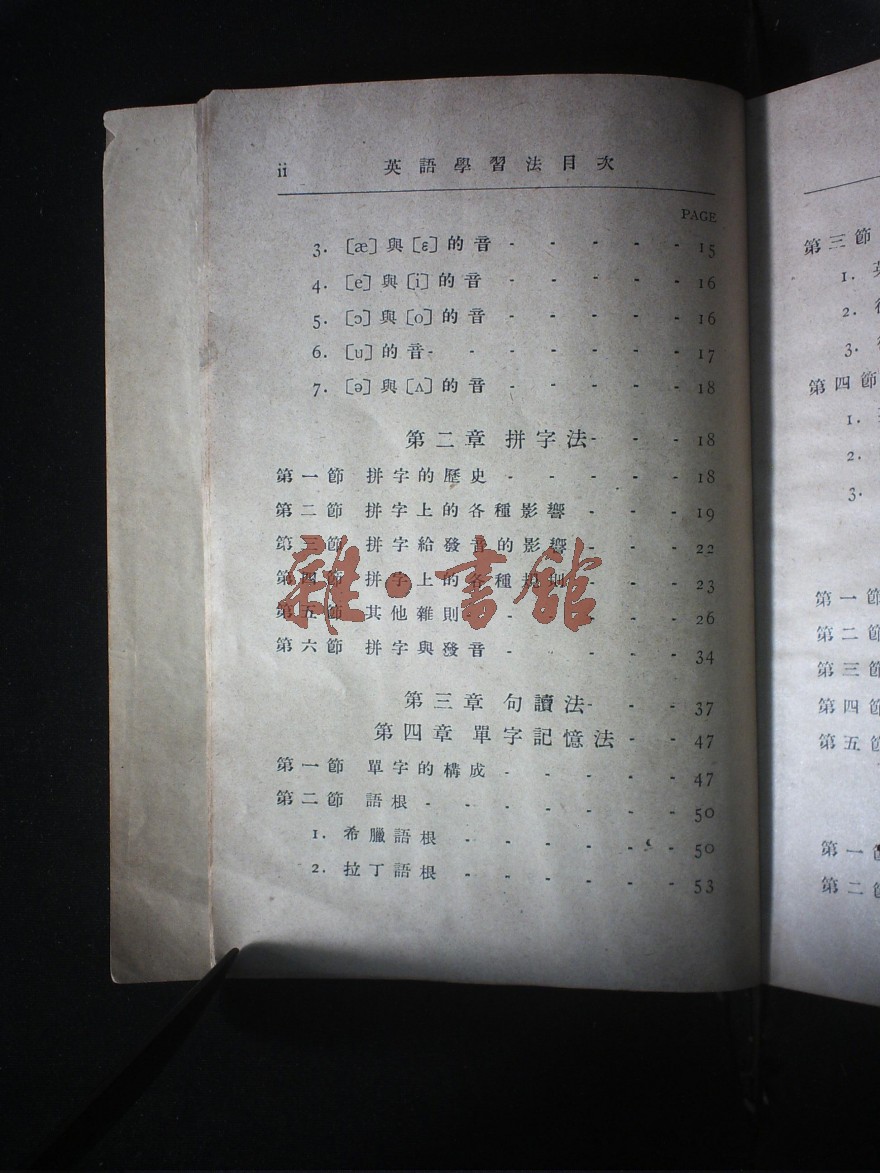 ii 英語學習法目次
PAGE
3. [æ] 與 [ε] 的音 - - - - - 15
4. [e] 與 [i] 的音 - - - - - 16
5. [ɔ] 與 [o] 的音 - - - - - 16
6. [u] 的音 - - - - - - - 17
7. [ə] 與 [ʌ] 的音 - - - - - 18
第二章 拼字法 - - - 18
第一節 拼字的歷史 - - - - - 18
第二節 拼字上的各種影響 - - - - 19
第三節 拼字給發音的影響 - - - 22
第四節 拼字上的各種規則 - - - 23
第五節 其他雜則 - - - - - 26
第六節 拼字與發音 - - - - - 34
雜·書館
第三章 句讀法 - - - 37
第四章 單字記憶法 - - 47
第一節 單字的構成 - - - - - 47
第二節 語根 - - - - - - - 50
1. 希臘語根 - - - - - - 50
2. 拉丁語根 - - - - - - 53
第三節
1. 英
2.
3.
第四節
1.
2.
3.
第一節
第二節
第三節
第四節
第五節
第一節
第二節